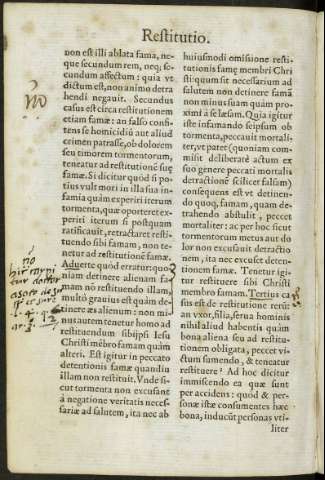 Restitutio.
non est illi ablata fama, ne-
que secundum rem, neq; se-
cundum affectum: quia vt
dictum est, non animo detra
hendi negauit. Secundus
casus est circa restitutionem
etiam famæ: an falso consi-
tens se homicidiū aut aliud
crimen patrasse, ob dolorem
seu timorem tormentorum,
teneatur ad restitutionē suę
famæ. Si dicitur quòd si po-
tius vult mori in illa sua in-
famia quàm experiri iterum
tormenta, quæ oporteret ex-
periri iterum si postquam
ratificauit, retractaret resti-
tuendo sibi famam, non te-
netur ad restitutionē famæ.
Aduerte quòd erratur: quo
niam detinere alienam fa-
mam nō restituendo illam,
multò grauius est quàm de-
tinere æs alienum: non mi-
nus autem tenetur homo ad
restituendum sibijpsi Iesu
Christi mēbro famam quàm
alteri. Est igitur in peccato
detentionis famæ quandiu
illam non restituit. Vnde si-
cut tormenta non excusant
à negatione veritatis neces-
sariæ ad salutem, ita nec ab
huiusmodi omissione resti-
tutionis famę membri Chri
sti: quum sit necessarium ad
salutem non detinere famā
non minus suam quàm pro-
ximi à se læsam. Quia igitur
iste infamando seipsum ob
tormenta, peccauit mortali-
ter, vt patet (quoniam com-
misit deliberatè actum ex
suo genere peccati mortalis
detractionē scilicet falsam)
consequens est vt detinen-
do quoq; famam, quam de-
trahendo abstulit, peccet
mortaliter: ac per hoc sicut
tormentorum metus aut do
lor non excusauit detractio
nem, ita nec excuset deten-
tionem famæ. Tenetur igi-
tur restituere sibi Christi
membro famam. Tertius ca
sus est de restitutione rerū:
an vxor, filia, serua hominis
nihil aliud habentis quàm
bona aliena seu ad restitu-
tionem obligata, peccet vi-
ctum sumendo, & teneatur
restituere? Ad hoc dicitur
immiscendo ea quæ sunt
per accidens: quòd & per-
sonæ istæ consumentes hæc
bona, inducūt personas vti-
liter